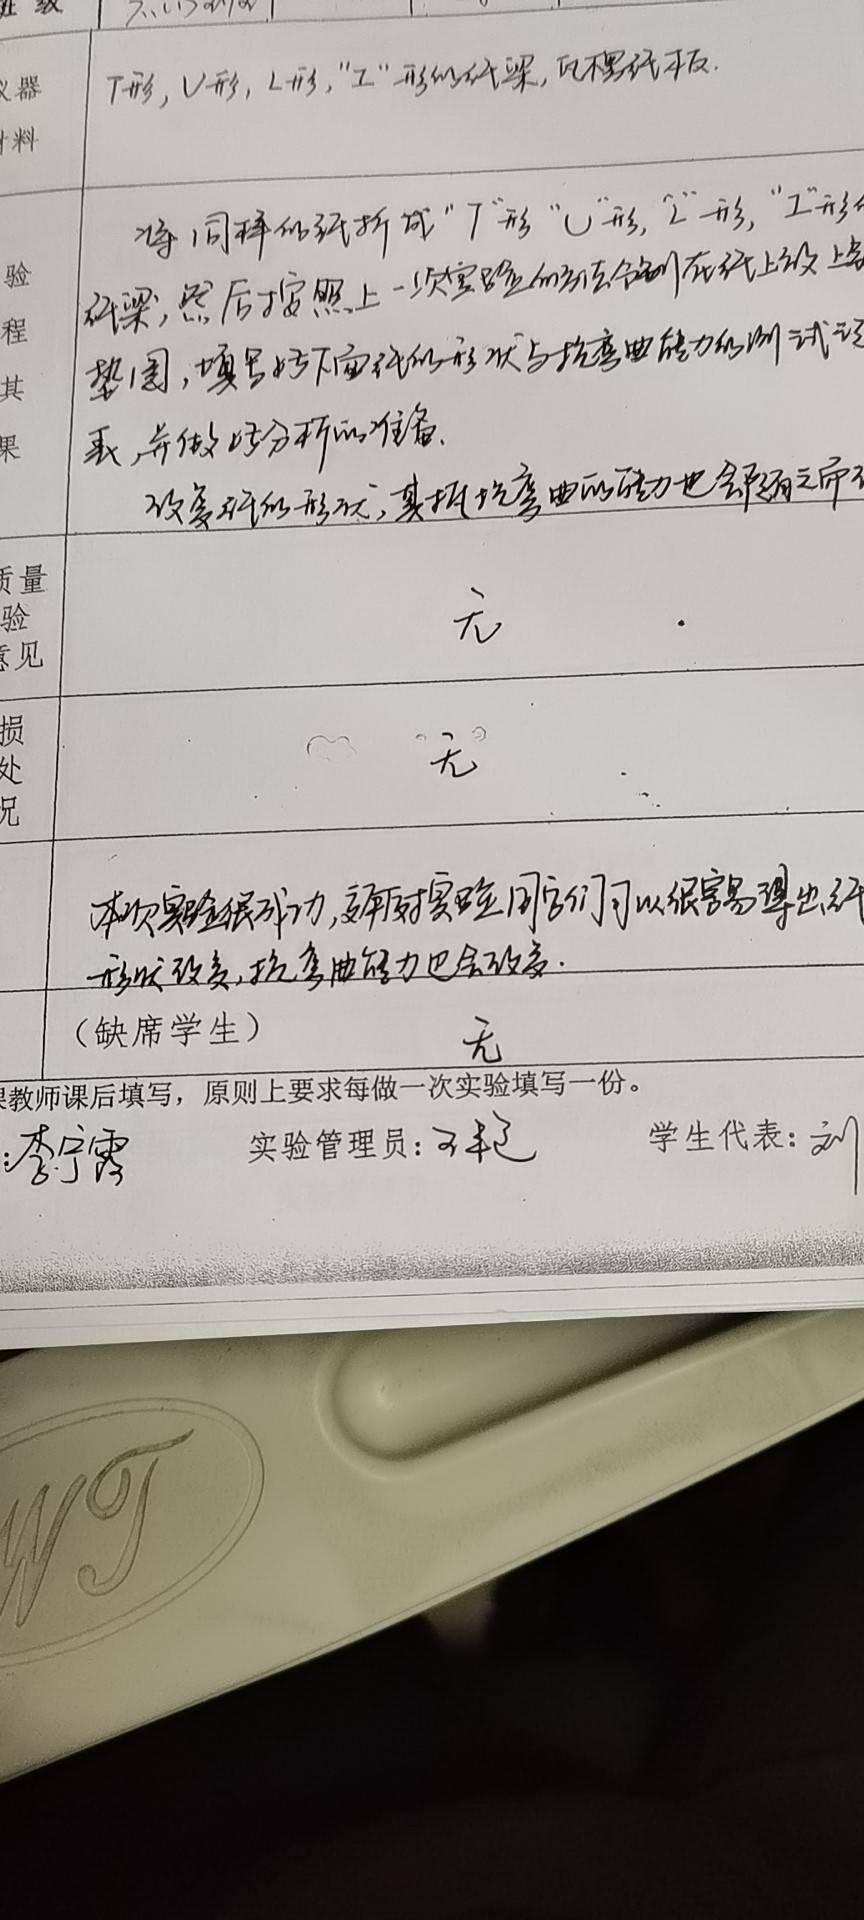 班级
仪器 T形,U形,L形,"工"形的纸梁,瓦楞纸板.
材料
将同样的纸折成"T"形"U"形,"L"形,"工"形的
验
纸梁,然后按照上一次实验的方法分别在纸上放上
程
垫圈,填写好下面纸的形状与抗弯曲能力的测试记
其
果 表,并做好分析的准备.
改变纸的形状,其抵抗弯曲的能力也会随之而
质量
验 无
意见
损
处 无
况
本次实验很成功,实验同学们可以很容易得出纸
形状改变,抗弯曲能力也会改变.
(缺席学生) 无
课教师课后填写,原则上要求每做一次实验填写一份。
:李宁霞 实验管理员: 学生代表:刘
WT